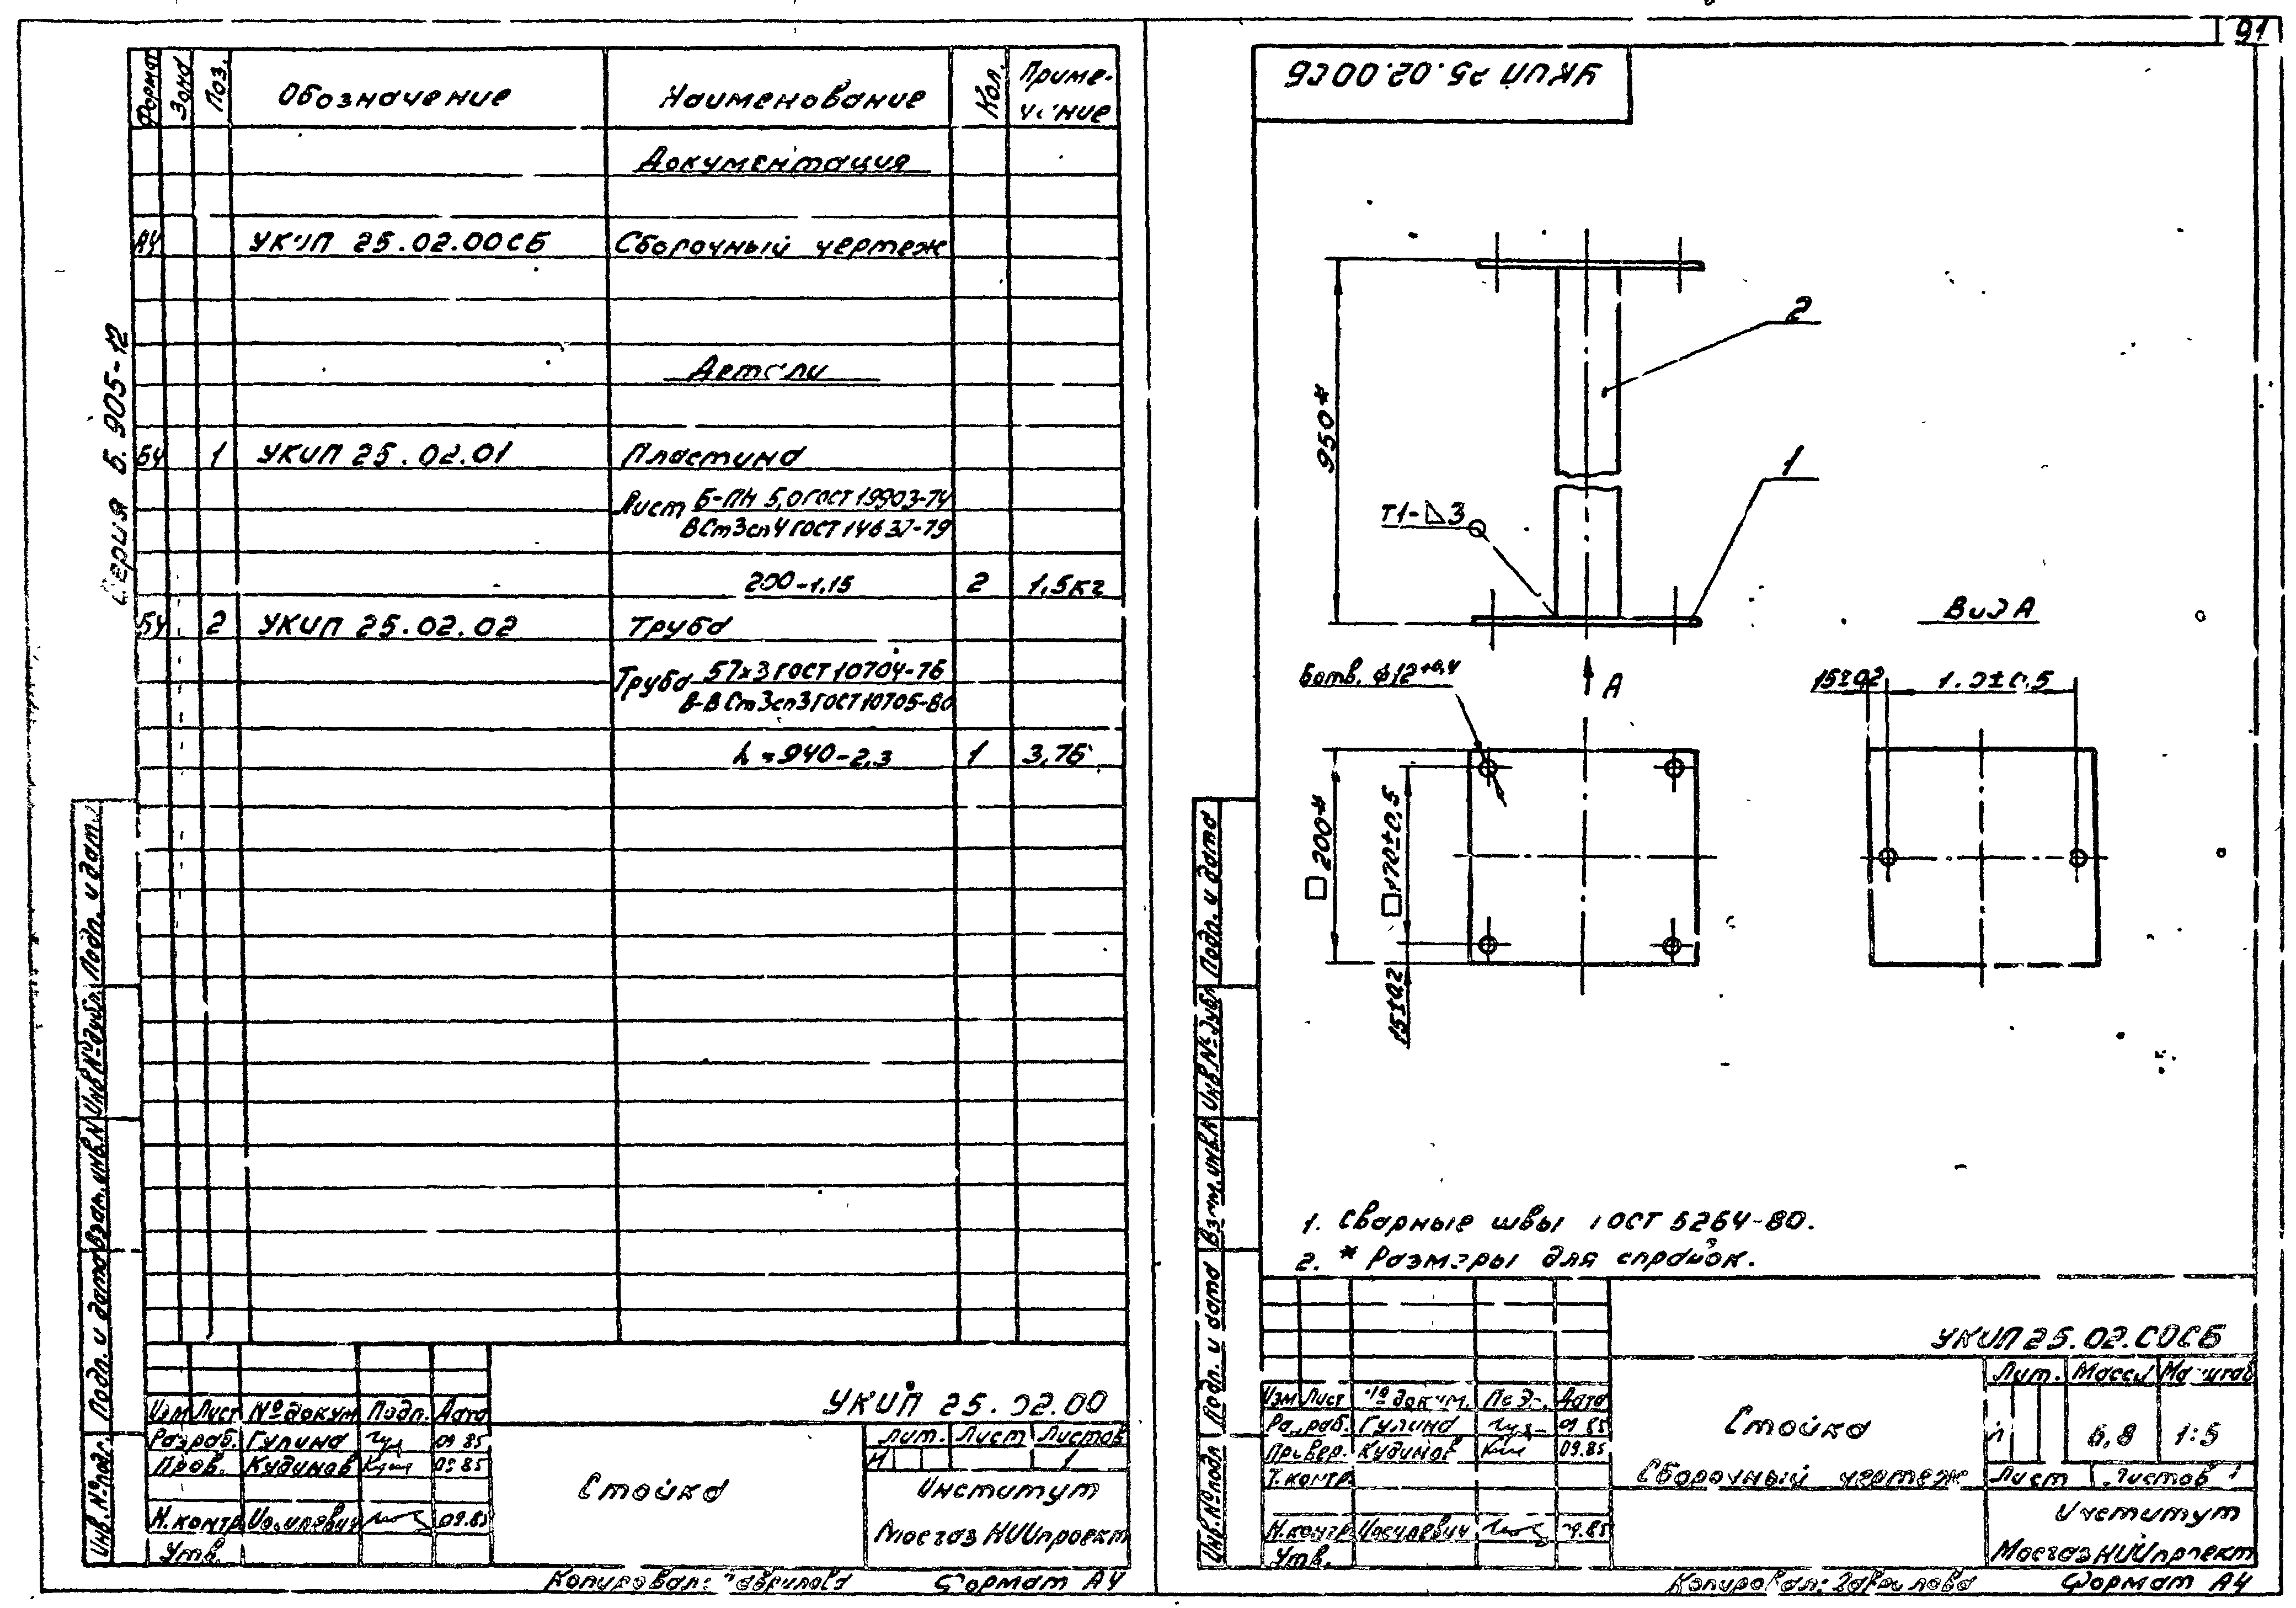 91
Серия 5.905-12
Формат Зона Поз. Обозначение Наименование Кол. Приме-
чание
Документация
А4 УКИП 25.02.00СБ Сборочный чертеж
Детали
Б4 1 УКИП 25.02.01 Пластина
Лист Б-ПН 5,0 ГОСТ 19903-74
ВСт3сп4 ГОСТ 14637-79
200-1,15 2 1,5кг
Б4 2 УКИП 25.02.02 Труба
Труба 57х3 ГОСТ 10704-76
В-В Ст3сп3 ГОСТ 10705-80
L=940-2,3 1 3,76
Подп. и дата
Инв.№дубл.
Взам.инв.№
Подп. и дата
Инв.№подл.
УКИП 25.02.00
Изм Лист №докум Подп. Дата
Разраб. Гулина 09.85
Пров. Кудинов 09.85
Н.контр 09.85
Утв.
Стойка
Лит. Лист Листов
И 1
Институт
МосгазНИИпроект
Копировал: Гаврилова Формат А4
УКИП 25.02.00СБ
950*
2
1
Т1-◺3
А
Вид А
6отв. ф12+0,4
15±0,2
□200*
□170±0,5
15±0,2
1. Сварные швы ГОСТ 5264-80.
2. * Размеры для справок.
УКИП 25.02.00СБ
Изм Лист №докум. Подп. Дата
Разраб. Гулина 09.85
Провер. Кудинов 09.85
Т.контр.
Н.контр 09.85
Утв.
Стойка
Сборочный чертеж
Лит. Масса Масштаб
И 6,8 1:5
Лист Листов 1
Институт
МосгазНИИпроект
Копировал: Гаврилова Формат А4
Подп. и дата
Инв.№дубл
Взам.инв.№
Подп. и дата
Инв.№подл